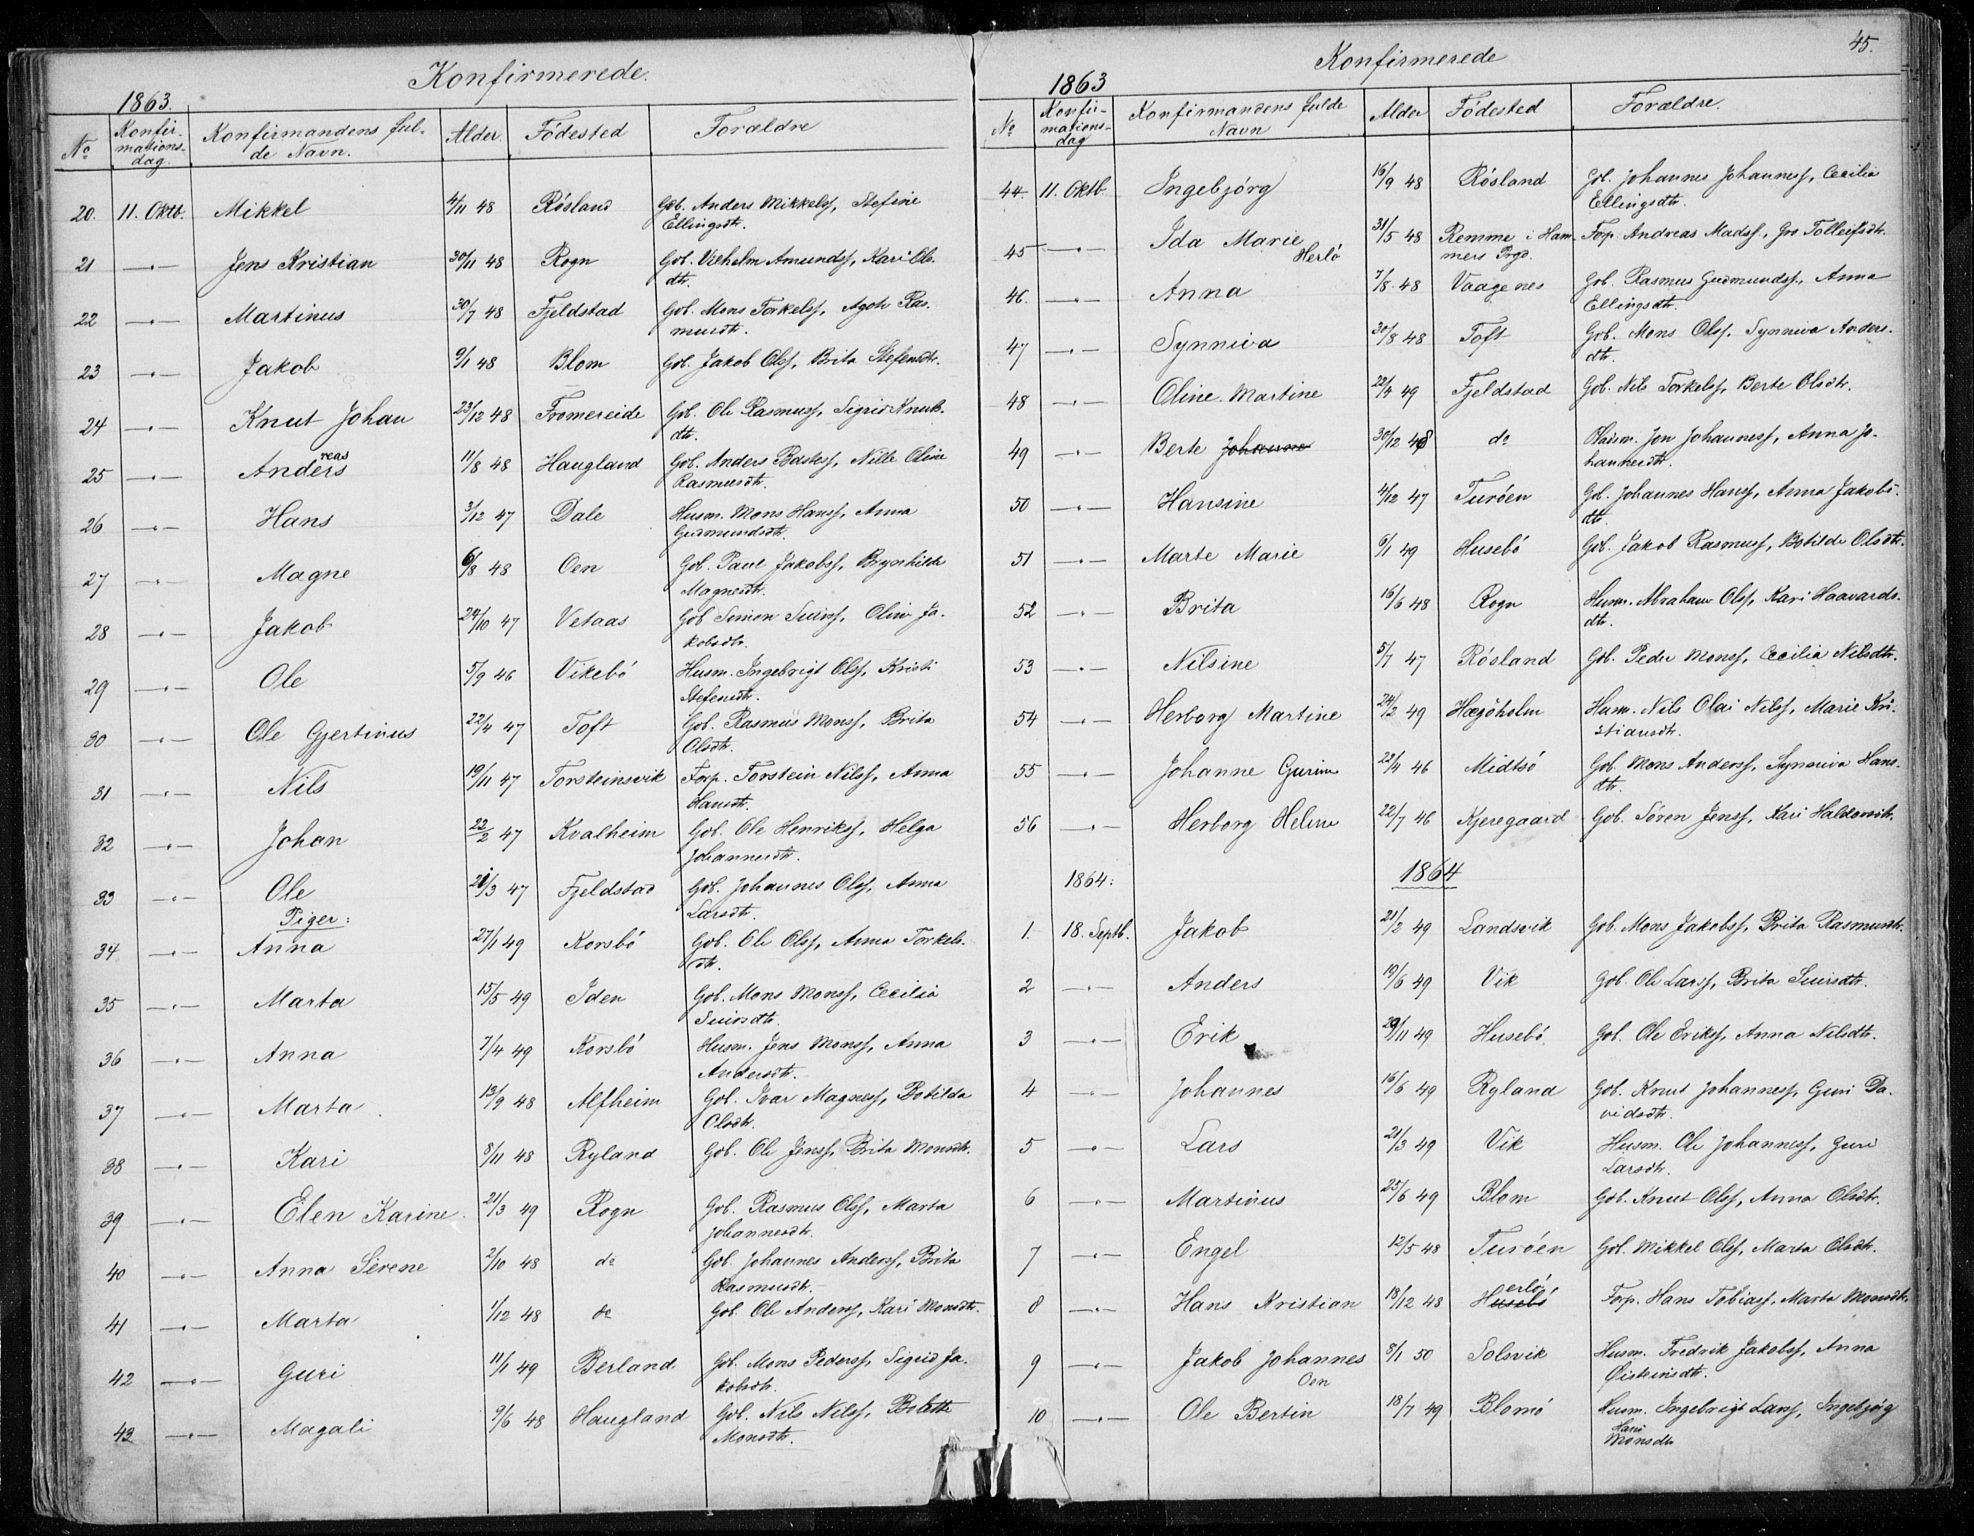 Konfirmerede.
1863.
No Konfirmationsdag. Konfirmandens fulde Navn. Alder. Födested Forældre
20. 11. Oktb. Mikkel 4/11 48 Rösland Gbb. Anders Mikkelsf, Stefine
Ellingsdtr.
21 —"— Jens Kristian 30/11 48 Rogn Gbb. Vilhelm Amundsf, Kari Ols
dtr.
22 —"— Martinus 30/7 48 Fjeldstad Gbb. Mons Torkelsf, Agote Ras-
musdtr.
23 —"— Jakob 9/1 48 Blom Gbb. Jakob Olsf, Brita Stefensdtr.
24 —"— Knut Johan 23/12 48 Fromereide Gbb. Ole Rasmusf, Sigrid Knuts-
dtr.
reas
25 —"— Anders 11/8 48 Haugland Gbb. Anders Baltesf, Nille Oline
Rasmusdtr.
26 —"— Hans 3/12 47 Dale Husm. Mons Hansf, Anna
Gudmundsdtr.
27 —"— Magne 6/8 48 Oen Gbb. Paul Jakobsf, Brynhilde
Magnesdtr.
28 —"— Jakob 24/10 47 Vetaas Gbb Simon Suirsf, Olin Ja-
kobsdtr.
29 —"— Ole 5/9 46 Vikebö Husm. Ingebrigt Olsf, Kristi
Stefensdtr.
30 —"— Ole Gjertinus 22/4 47 Toft Gbb. Rasmus Monsf, Brita
Olsdtr.
31 —"— Nils 19/11 47 Torsteinsvik Forp. Torstein Nilsf, Anna
Hansdtr.
32 —"— Johan 22/2 47 Kvalheim Gbb. Ole Henriksf, Helga
Johannesdtr.
33 —"— Ole 21/3 47 Fjeldstad Gbb. Johannes Olsf, Anna
Larsdtr.
Piger:
34 —"— Anna 27/1 49 Korsbö Gbb. Ole Olsf, Anna Torkels-
dtr.
35 —"— Marta 15/5 49 Iden Gbb. Mons Monsf, Cecilia
Suirsdtr.
36 —"— Anna 7/4 49 Korsbö Husm. Jens Monsf, Anna
Andersdtr.
37 —"— Marta 13/9 48 Alfheim Gbb. Ivar Magnesf, Botilda
Olsdtr.
38 —"— Kari 8/11 48 Ryland Gbb. Ole Jensf, Brita Monsdtr.
39 —"— Elen Karine 21/3 49 Rogn Gbb. Rasmus Olsf, Marta
Johannesdtr.
40 —"— Anna Serene 2/10 48 do Gbb. Johannes Andersf, Brita
Rasmusdtr.
41 —"— Marta 1/12 48 do Gbb. Ole Andersf, Kari Monsdtr.
42 —"— Guri 11/1 49 Berland Gbb. Mons Pedersf, Sigrid Ja-
kobsdtr.
43 —"— Magali 9/6 48 Haugland Gbb. Nils Nilsf, Bolette
Monsdtr.
45.
Konfirmerede
1863
No Konfirmationsdag Konfirmandens fulde Navn Alder Födested Forældre.
44. 11. Oktb. Ingebjörg 16/9 48 Rösland Gbb. Johannes Johannesf, Cecilia
Ellingsdtr.
45 —"— Ida Marie Herlö 31/5 48 Remme i Ham- Forp. Andreas Madsf, Gro Tolleifsdtr.
mers Prgd.
46. —"— Anna 7/8 48 Vaagenes Gbb. Rasmus Gudmundsf, Anna
Ellingsdtr.
47 —"— Synniva 30/8 48 Toft Gbb. Mons Olsf, Synniva Anders-
dtr.
48 —"— Oline Martine 22/4 49 Fjeldstad Gbb. Nils Torkelsf, Berte Olsdtr.
49 —"— Berte Johanne 30/12 48 do Husm. Jon Johannesf, Anna Jo-
hannesdtr.
50 —"— Hansine 4/12 47 Turöen Gbb. Johannes Hansf, Anna Jakobs-
dtr.
51 —"— Marte Marie 6/1 49 Husebö Gbb. Jakob Rasmusf, Botilde Olsdtr.
52 —"— Brita 16/6 48 Rogn Husm. Abraham Olsf, Kari Haavards-
dtr.
53 —"— Nilsine 5/7 47 Rösland Gbb. Peder Monsf, Cecilia Nilsdtr.
54 —"— Herborg Martine 24/2 49 Hægöholm Husm. Nils Olai Nilsf, Marie Kri-
stiansdtr.
55 —"— Johanne Gurine 22/4 46 Midtsö Gbb. Mons Andersf, Synniva Hans-
dtr.
56 —"— Herborg Helene 22/7 46 Kjeregaard Gbb. Sören Jensf, Kari Haldorsdtr.
1864: 1864
1. 18. Septb. Jakob 21/2 49 Landsvik Gbb. Mons Jakobsf, Brita Rasmusdtr.
2 —"— Anders 19/6 49 Vik Gbb. Ole Larsf, Brita Suirsdtr.
3 —"— Erik 29/11 49 Husebö Gbb. Ole Eriksf, Anna Nilsdtr.
4 —"— Johannes 16/6 49 Ryland Gbb. Knut Johannesf, Guri Da-
vidsdtr.
5 —"— Lars 21/3 49 Vik Husm. Ole Johannesf, Guri
Larsdtr.
6 —"— Martinus 25/6 49 Blom Gbb. Knut Olsf, Anna Olsdtr.
7 —"— Engel 12/5 48 Turöen Gbb. Mikkel Olsf, Marta Olsdtr.
erlö
8 —"— Hans Kristian 18/12 48 Husebö Forp. Hans Tobiasf, Marta Monsdtr.
9 —"— Jakob Johannes Oen 8/1 50 Solsvik Husm. Fredrik Jakobsf, Anna
Öisteinsdtr.
10 —"— Ole Bertin 18/7 49 Blomö Husm. Ingebrigt Larsf, Ingebjörg
Monsdtr